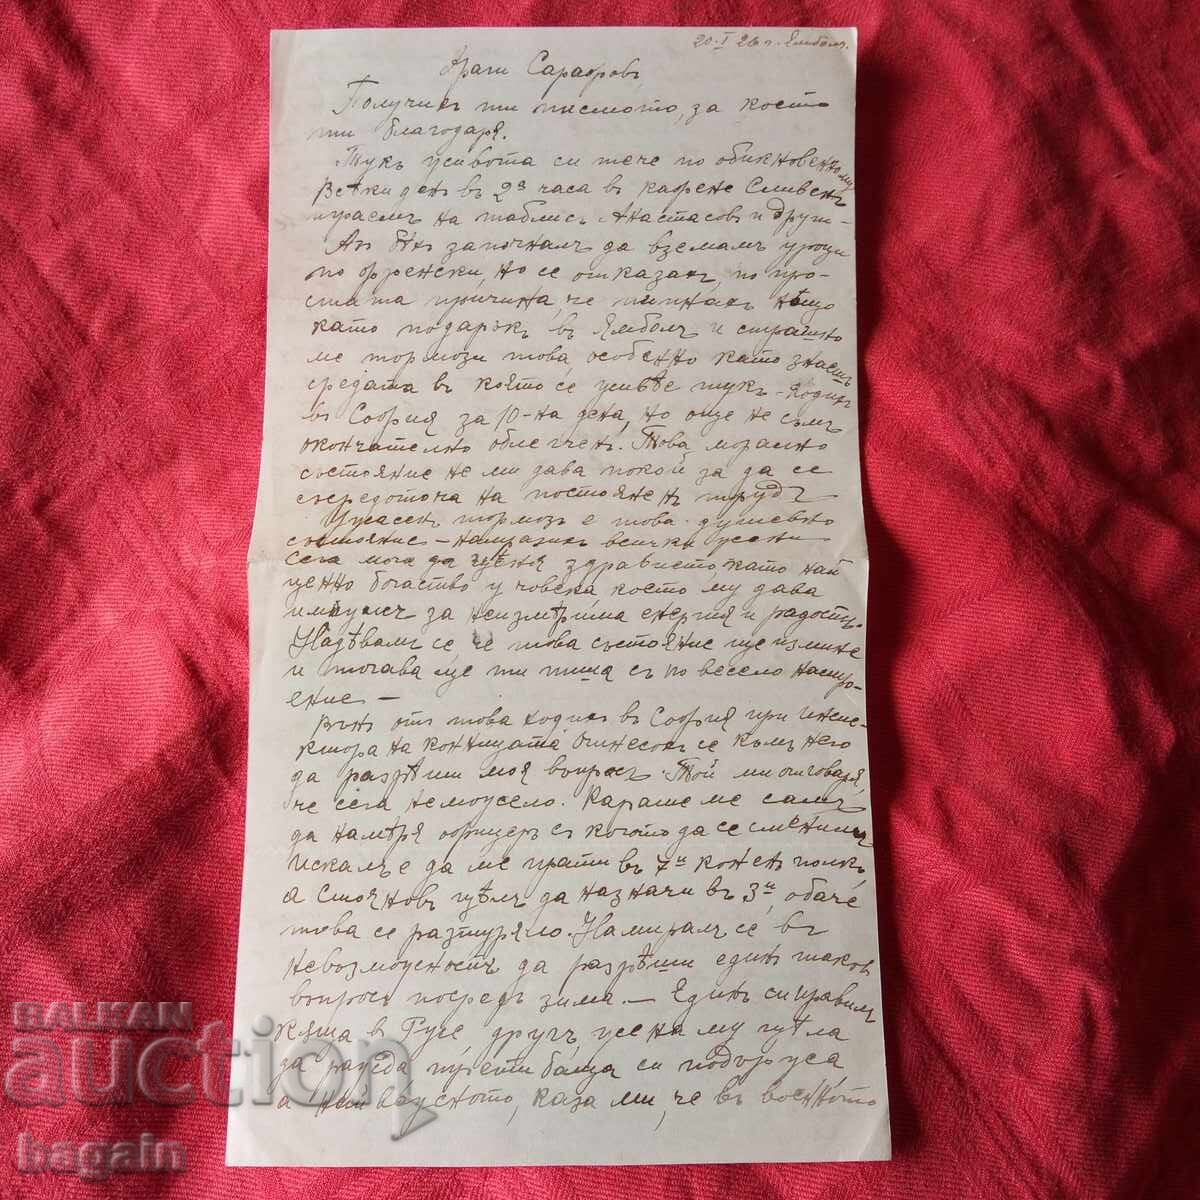 20.I 26 г. Ямболъ.
Драги Сарафовъ
Получихъ ти писмото, за което
ти благодаря.
Тукъ живота си тече по обикновенному
Всѣки день въ 2 часа въ кафене Сливенъ
играемъ на таблисъ Анастасовъ и други-
Аз бѣхъ започналъ да вземамъ уроци
по френски, но се отказахъ, по про-
стата причина, че пипнахъ нѣщо
като подаръкъ въ Ямболъ и страшно
ме тормози това, особенно като знаешъ
средата въ която се живѣе тукъ - Ходихъ
въ София за 10-на дена, но още не съмъ
окончателно облегченъ. Това морално
състояние не ми дава покой за да се
съсредоточа на постояненъ трудъ
Ужасенъ тормозъ е това душевно
състояние - намразихъ всички жени
Сега мога да ценя здравието като най
ценно богатство у човека което му дава
импулсъ за неизмѣрима енергия и радость.
Надѣвамъ се, че това състояние ще измине
и тогава ще ти пиша съ по весело настро-
ение -
Вънъ отъ това ходихъ въ София при Инспе-
ктора на конницата Отнесохъ се къмъ него
да разрѣши моя въпросъ. Той ми отговаря,
че сега неможело. Караше ме самъ
да намѣря офицеръ съ когото да се смениме
Искалъ е да ме прати въ 7и коненъ полкъ
а Стоянов щѣлъ да назначи въ 3и, обаче
това се разтуряло. Намиралъ се въ
невозможность да разрѣши единъ такъв
въпросъ посредъ зима. - Единъ си правилъ
къща в Русе, другъ жена му щѣла
да ражда трети баща си подържа
а най вкусното, каза ми, че въ военното
BALKAN
auction
bagain